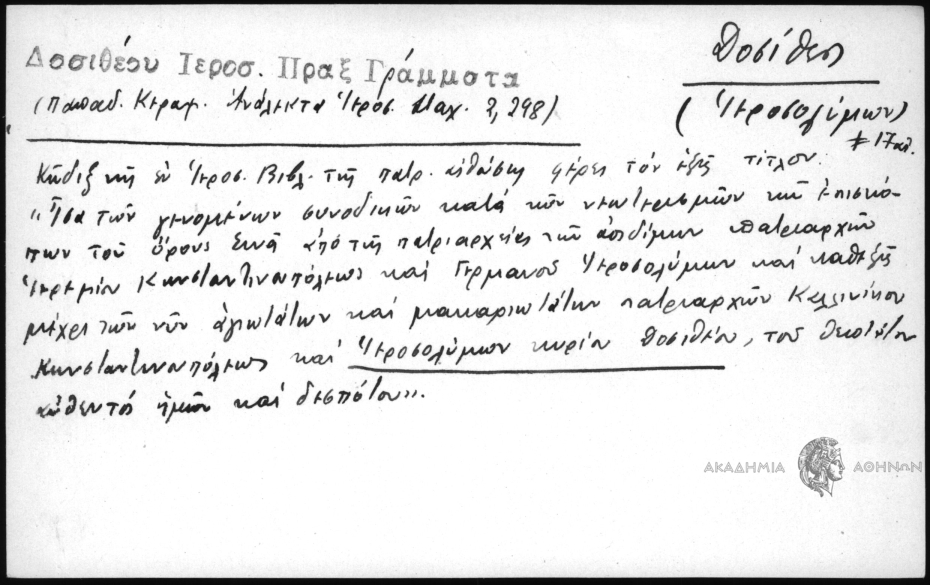 Δοσιθέου Ιεροσ. Πραξ Γράμματα
(Παπαδ. Κεραμ. Ἀνάλεκτα Ἱεροσ. Σταχ. 2, 298)
Δοσίθεος
(Ἱεροσολύμων)
‡ 17 αἰ.
Κῶδιξ τῆς ἐν Ἱεροσ. Βιβλ. τῆς πατρ. αἰθούσης φέρει τὸν ἑξῆς τίτλον:
"Ἴσα τῶν γενομένων συνοδικῶν κατὰ τῶν νεωτερισμῶν τῶν ἐπισκό-
πων τοῦ ὄρους Σινᾶ ἀπὸ τῆς πατριαρχείας τῶν ἀοιδίμων πατριαρχῶν
Ἱερεμίου Κωνσταντινουπόλεως καὶ Γερμανοῦ Ἱεροσολύμων καὶ καθεξῆς
μέχρι τῶν νῦν ἁγιωτάτων καὶ μακαριωτάτων πατριαρχῶν Καλλινίκου
Κωνσταντινουπόλεως καὶ Ἱεροσολύμων κυρίου Δοσιθέου, τοῦ θειοτάτου
αὐθεντὸς ἡμῶν καὶ δεσπότου".
ΑΚΑΔΗΜΙΑ ΑΘΗΝΩΝ